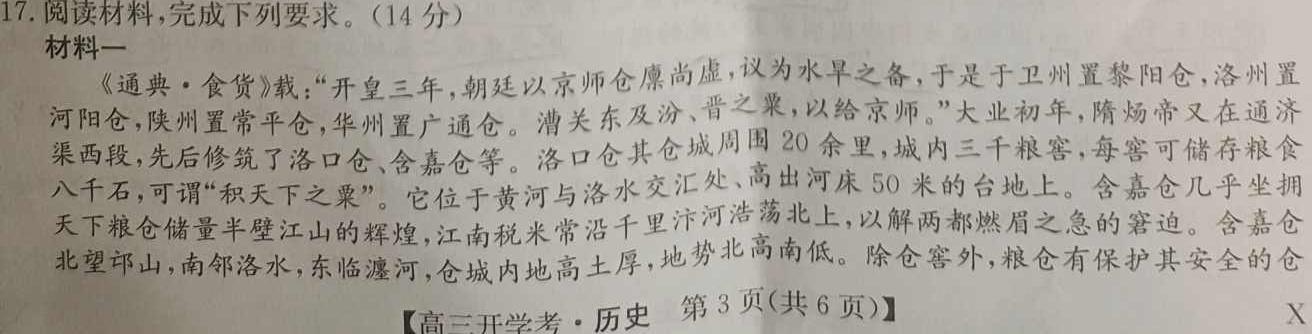 17. 阅读材料,完成下列要求。(14 分)
材料一
《通典·食货》载:“开皇三年,朝廷以京师仓廪尚虚,议为水旱之备,于是于卫州置黎阳仓,洛州置
河阳仓,陕州置常平仓,华州置广通仓。漕关东及汾、晋之粟,以给京师。”大业初年,隋炀帝又在通济
渠西段,先后修筑了洛口仓、含嘉仓等。洛口仓其仓城周围 20 余里,城内三千粮窖,每窖可储存粮食
八千石,可谓“积天下之粟”。它位于黄河与洛水交汇处、高出河床 50 米的台地上。含嘉仓几乎坐拥
天下粮仓储量半壁江山的辉煌,江南税米常沿千里汴河浩荡北上,以解两都燃眉之急的窘迫。含嘉仓
北望邙山,南邻洛水,东临瀍河,仓城内地高土厚,地势北高南低。除仓窖外,粮仓有保护其安全的仓
【高三开学考·历史 第 3 页(共 6 页)】
X